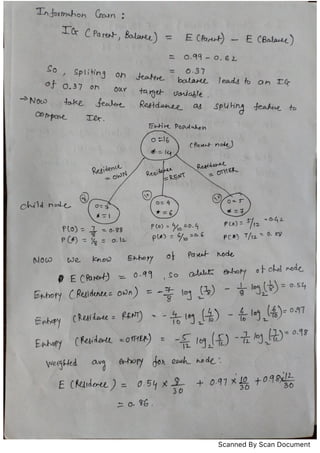 Information Gain :
IG (Parent, Balance) = E (Parent) - E (Balance)
= 0.99 - 0.62
= 0.37
So, spliting on feature balance leads to an IG
of 0.37 on our target variable.
→ Now take feature Residence as spliting feature to
compare IG.
Entire Population
O = 16
* = 14
(Parent node)
Residence = OWN
Residence = RENT
Residence = OTHER
Child node
O = 7
* = 1
O = 4
* = 6
O = 5
* = 7
P(O) = 7/8 = 0.88
P(*) = 1/8 = 0.12
P(O) = 4/10 = 0.4
P(*) = 6/10 = 0.6
P(O) = 5/12 = 0.42
P(*) 7/12 = 0.58
Now we know Entropy of Parent node
E (Parent) = 0.99, so entropy of child node
Entropy (Residence = OWN) = -7/8 log2 (7/8) - 1/8 log2 (1/8) = 0.54
Entropy (Residence = RENT) = -4/10 log2 (4/10) - 6/10 log2 (6/10) = 0.97
Entropy (Residence = OTHER) = -5/12 log2 (5/12) - 7/12 log2 (7/12) = 0.98
Weighted avg entropy for each node :
E (Residence) = 0.54 × 8/30 + 0.97 × 10/30 + 0.98 × 12/30
= 0.86.
Scanned By Scan Document